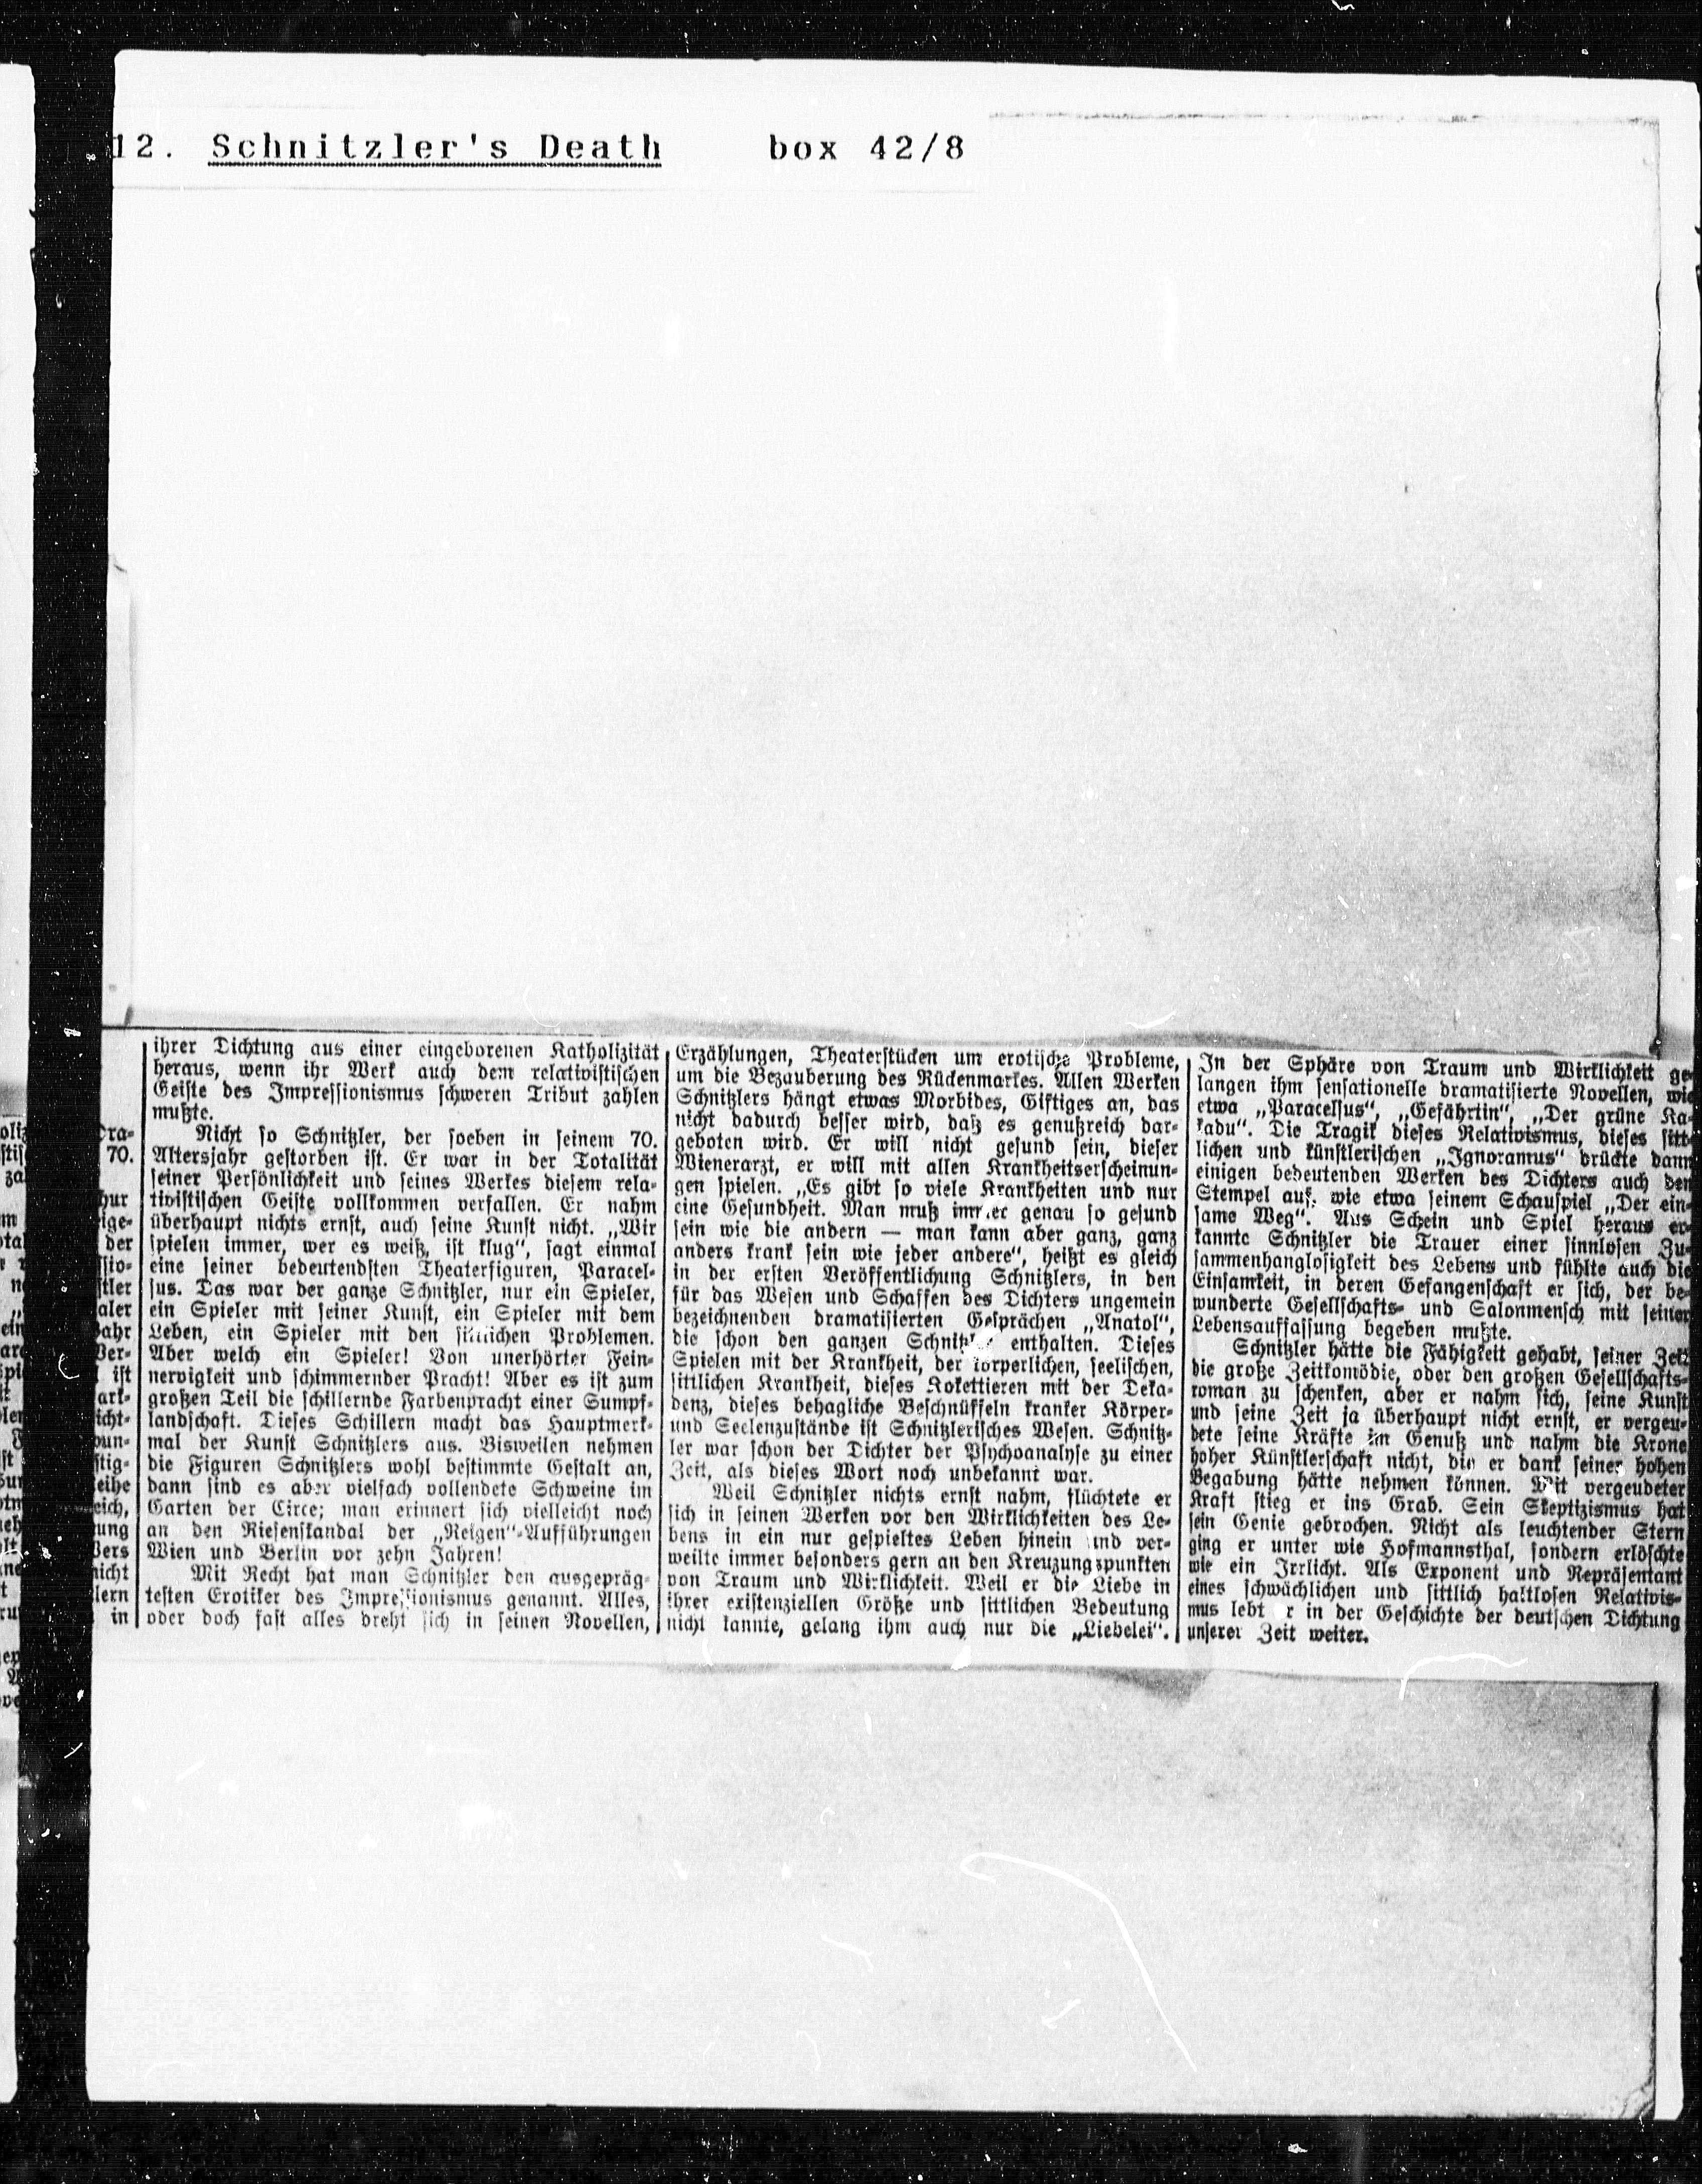 12. Schnitzler's Death box 42/8
ihrer Dichtung aus einer eingeborenen Katholizität
heraus, wenn ihr Werk auch dem relativistischen
Geiste des Impressionismus schweren Tribut zahlen
mußte.
Nicht so Schnitzler, der soeben in seinem 70.
Altersjahr gestorben ist. Er war in der Totalität
seiner Persönlichkeit und seines Werkes diesem rela-
tivistischen Geiste vollkommen verfallen. Er nahm
überhaupt nichts ernst, auch seine Kunst nicht. „Wir
spielen immer, wer es weiß, ist klug“, sagt einmal
eine seiner bedeutendsten Theaterfiguren, Paracel-
sus. Das war der ganze Schnitzler, nur ein Spieler,
ein Spieler mit seiner Kunst, ein Spieler mit dem
Leben, ein Spieler mit den sittlichen Problemen.
Aber welch ein Spieler! Von unerhörter Fein-
nervigkeit und schimmernder Pracht! Aber es ist zum
großen Teil die schillernde Farbenpracht einer Sumpf-
landschaft. Dieses Schillern macht das Hauptmerk-
mal der Kunst Schnitzlers aus. Bisweilen nehmen
die Figuren Schnitzlers wohl bestimmte Gestalt an,
dann sind es aber vielfach vollendete Schweine im
Garten der Circe; man erinnert sich vielleicht noch
an den Riesenskandal der „Reigen“-Aufführungen
Wien und Berlin vor zehn Jahren!
Mit Recht hat man Schnitzler den ausgepräg-
testen Erotiker des Impressionismus genannt. Alles,
oder doch fast alles dreht sich in seinen Novellen,
Erzählungen, Theaterstücken um erotische Probleme,
um die Bezauberung des Rückenmarkes. Allen Werken
Schnitzlers hängt etwas Morbides, Giftiges an, das
nicht dadurch besser wird, daß es genußreich dar-
geboten wird. Er will nicht gesund sein, dieser
Wienerarzt, er will mit allen Krankheitserscheinun-
gen spielen. „Es gibt so viele Krankheiten und nur
eine Gesundheit. Man muß immer genau so gesund
sein wie die andern — man kann aber ganz, ganz
anders krank sein wie jeder andere“, heißt es gleich
in der ersten Veröffentlichung Schnitzlers, in den
für das Wesen und Schaffen des Dichters ungemein
bezeichnenden dramatisierten Gesprächen „Anatol“,
die schon den ganzen Schnitzler enthalten. Dieses
Spielen mit der Krankheit, der körperlichen, seelischen,
sittlichen Krankheit, dieses Kokettieren mit der Deka-
denz, dieses behagliche Beschnüffeln kranker Körper-
und Seelenzustände ist Schnitzlerisches Wesen. Schnitz-
ler war schon der Dichter der Psychoanalyse zu einer
Zeit, als dieses Wort noch unbekannt war.
Weil Schnitzler nichts ernst nahm, flüchtete er
sich in seinen Werken vor den Wirklichkeiten des Le-
bens in ein nur gespieltes Leben hinein und ver-
weilte immer besonders gern an den Kreuzungspunkten
von Traum und Wirklichkeit. Weil er die Liebe in
ihrer existenziellen Größe und sittlichen Bedeutung
nicht kannte, gelang ihm auch nur die „Liebelei“.
In der Sphäre von Traum und Wirklichkeit ge-
langen ihm sensationelle dramatisierte Novellen, wie
etwa „Paracelsus“, „Gefährtin“, „Der grüne Ka-
kadu“. Die Tragik dieses Relativismus, dieses sitt-
lichen und künstlerischen „Ignoramus“ drückte dann
einigen bedeutenden Werken des Dichters auch den
Stempel auf, wie etwa seinem Schauspiel „Der ein-
same Weg“. Aus Schein und Spiel heraus er-
kannte Schnitzler die Trauer einer sinnlosen Zu-
sammenhanglosigkeit des Lebens und fühlte auch die
Einsamkeit, in deren Gefangenschaft er sich, der be-
wunderte Gesellschafts- und Salonmensch mit seiner
Lebensauffassung begeben mußte.
Schnitzler hätte die Fähigkeit gehabt, seiner Zeit
die große Zeitkomödie, oder den großen Gesellschafts-
roman zu schenken, aber er nahm sich, seine Kunst
und seine Zeit ja überhaupt nicht ernst, er vergeu-
dete seine Kräfte im Genuß und nahm die Krone
hoher Künstlerschaft nicht, die er dank seiner hohen
Begabung hätte nehmen können. Mit vergeudeter
Kraft stieg er ins Grab. Sein Skeptizismus hat
sein Genie gebrochen. Nicht als leuchtender Stern
ging er unter wie Hofmannsthal, sondern erlöschte
wie ein Irrlicht. Als Exponent und Repräsentant
eines schwächlichen und sittlich haltlosen Relativis-
mus lebt er in der Geschichte der deutschen Dichtung
unserer Zeit weiter.